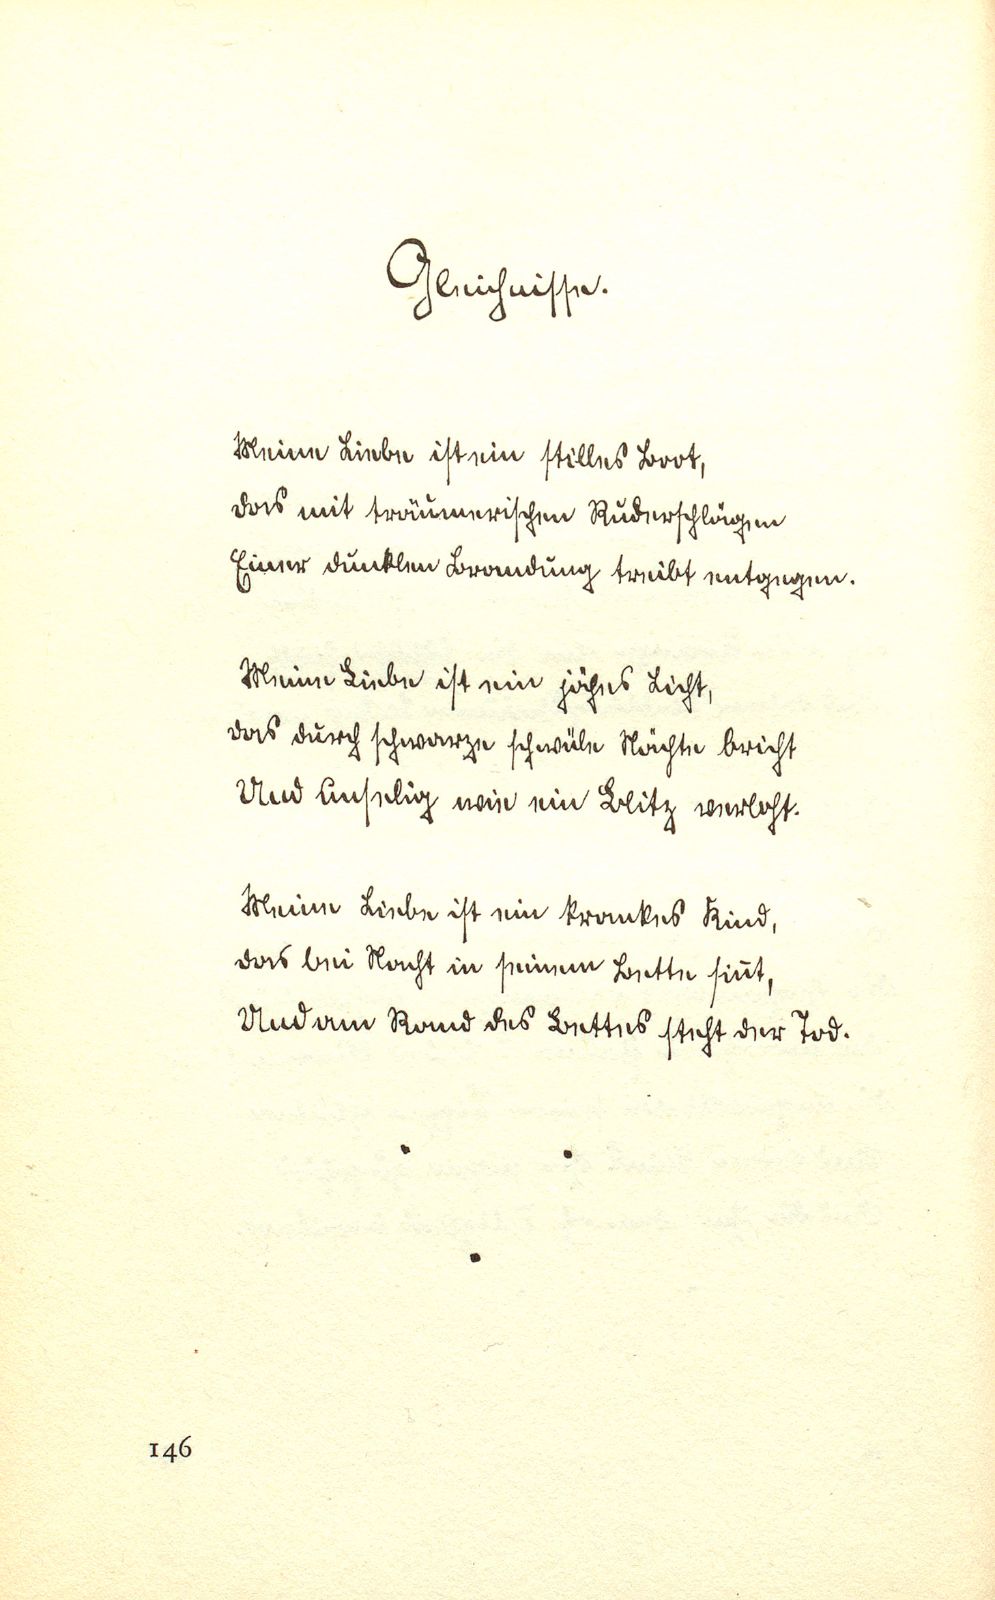 Gleichnisse.
Meine Liebe ist ein stilles Boot,
das mit träumerischen Ruderschlägen
Einer dunklen Brandung treibt entgegen.
Meine Liebe ist ein jähes Licht,
das durch schwarze schwüle Nächte bricht
Und unselig wie ein Blitz verloht.
Meine Liebe ist ein krankes Kind,
das bei Nacht in seinem Bette sinnt,
Und am Rand des Bettes steht der Tod.
146